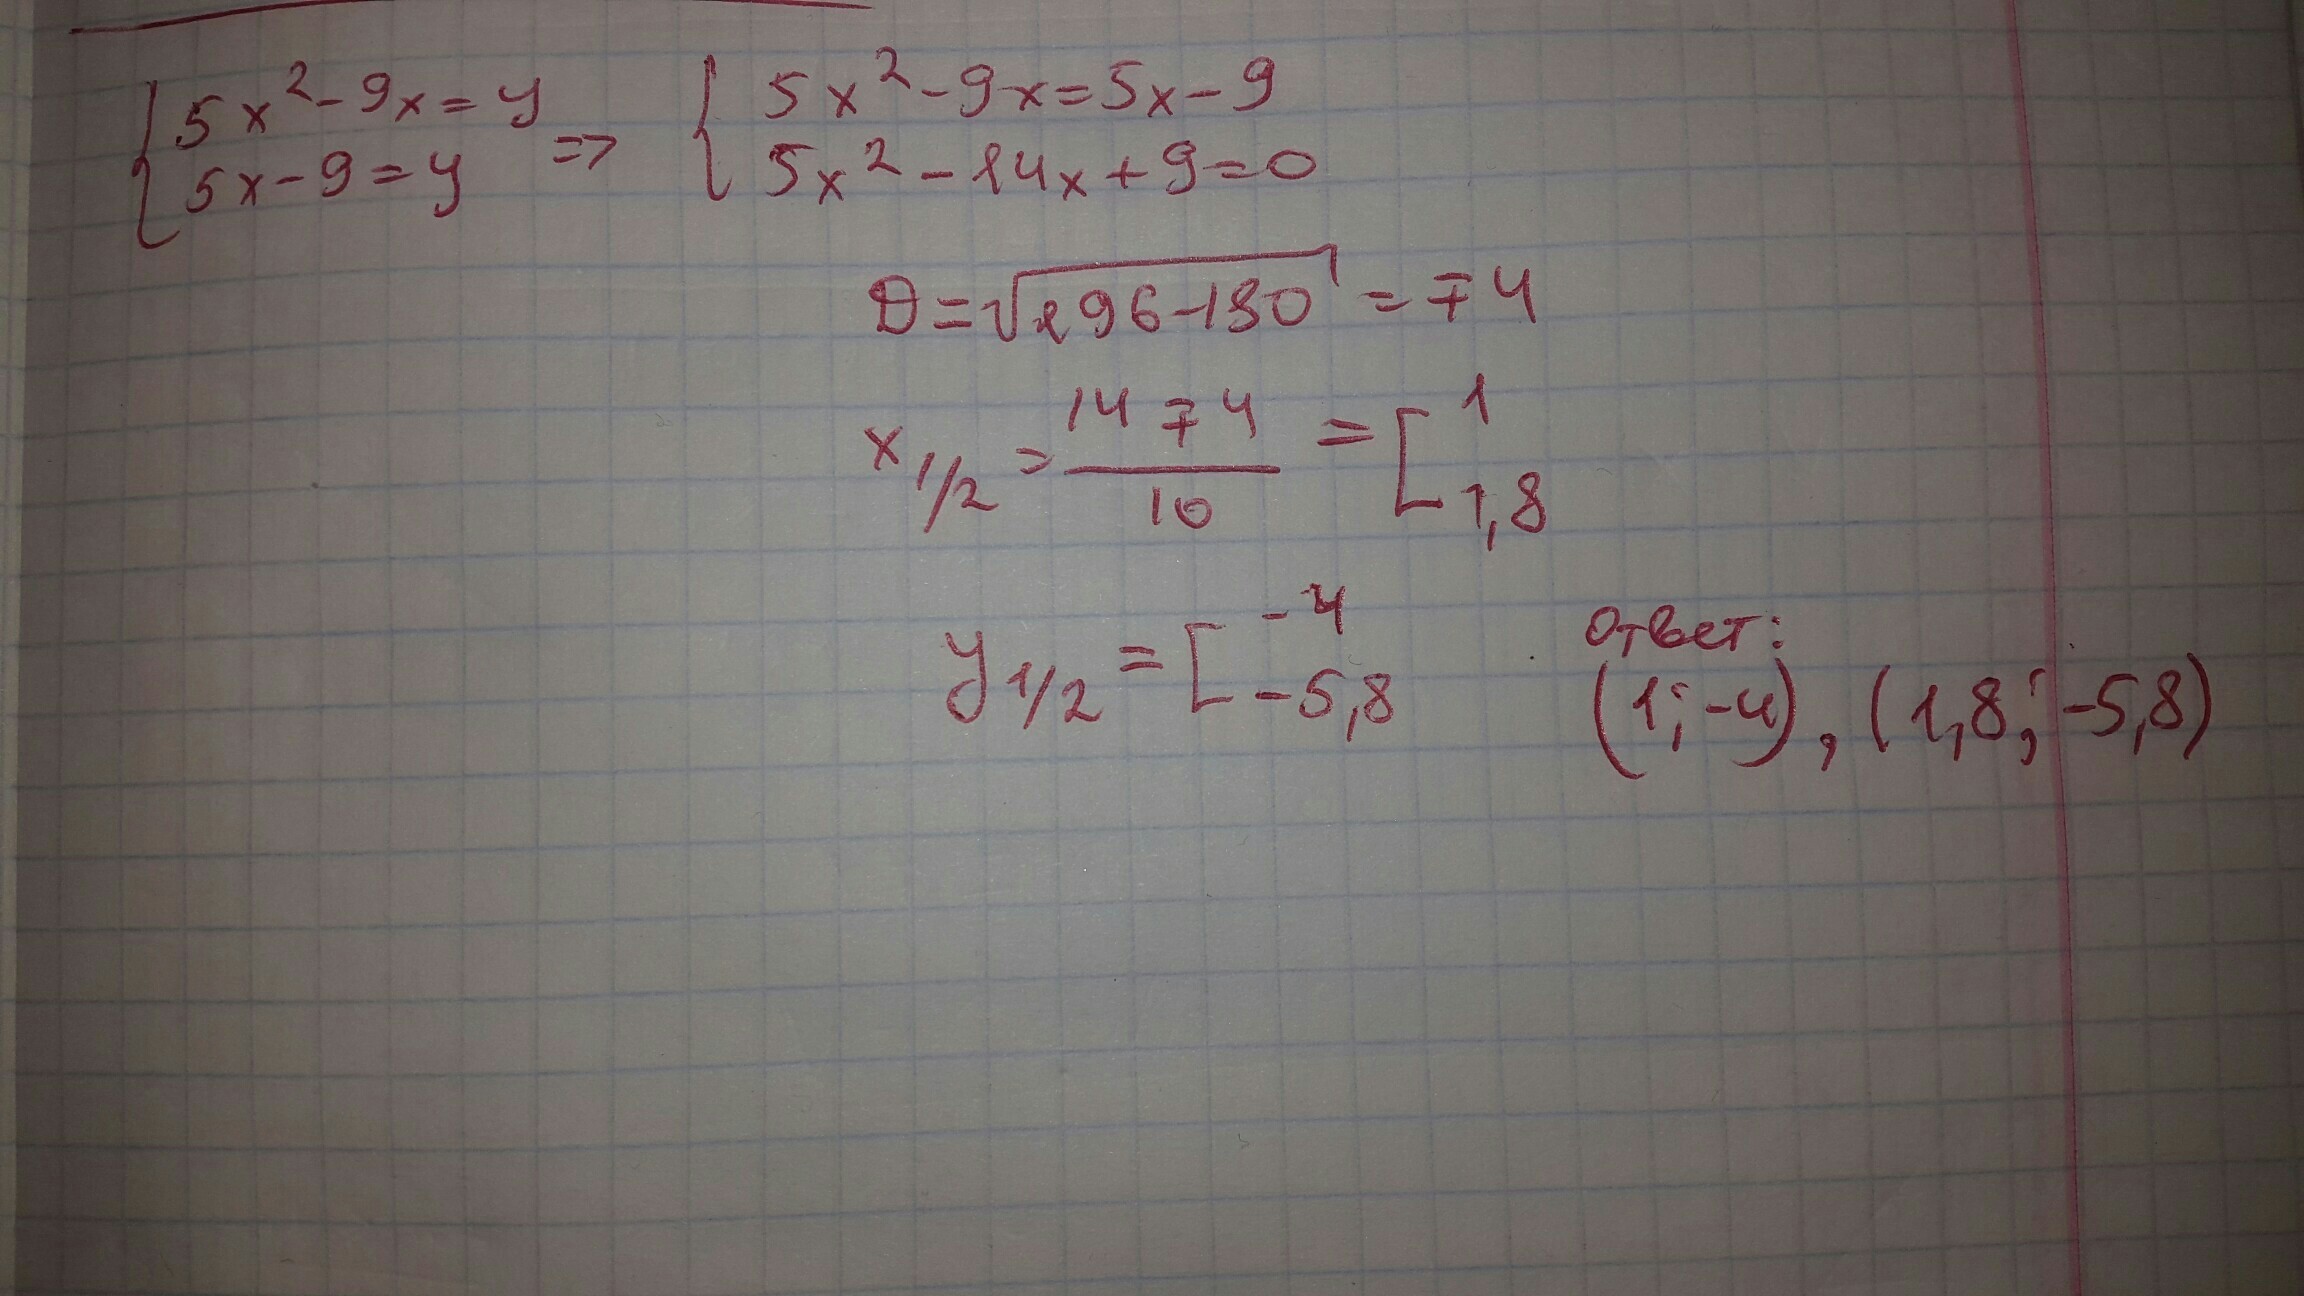 { 5x² - 9x = y
{ 5x - 9 = y
=>
{ 5x² - 9x = 5x - 9
{ 5x² - 14x + 9 = 0
D = √196-180 = ∓4
x 1/2 = (14 ∓ 4)/10 = [ 1
1,8
y 1/2 = [ -4
-5,8
Ответ:
(1; -4), (1,8; -5,8)